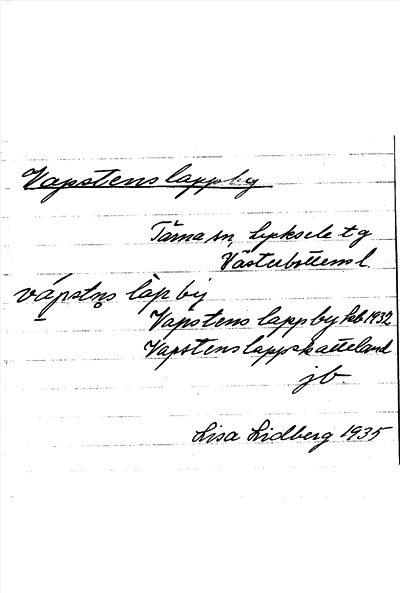 Vapstens lappby
Tärna sn, Lycksele tg
Västerbottens l.
vápstn̥s làp by
Vapstens lappby kb 1932
Vapstens lappskatteland
jb.
Lisa Lidberg 1935